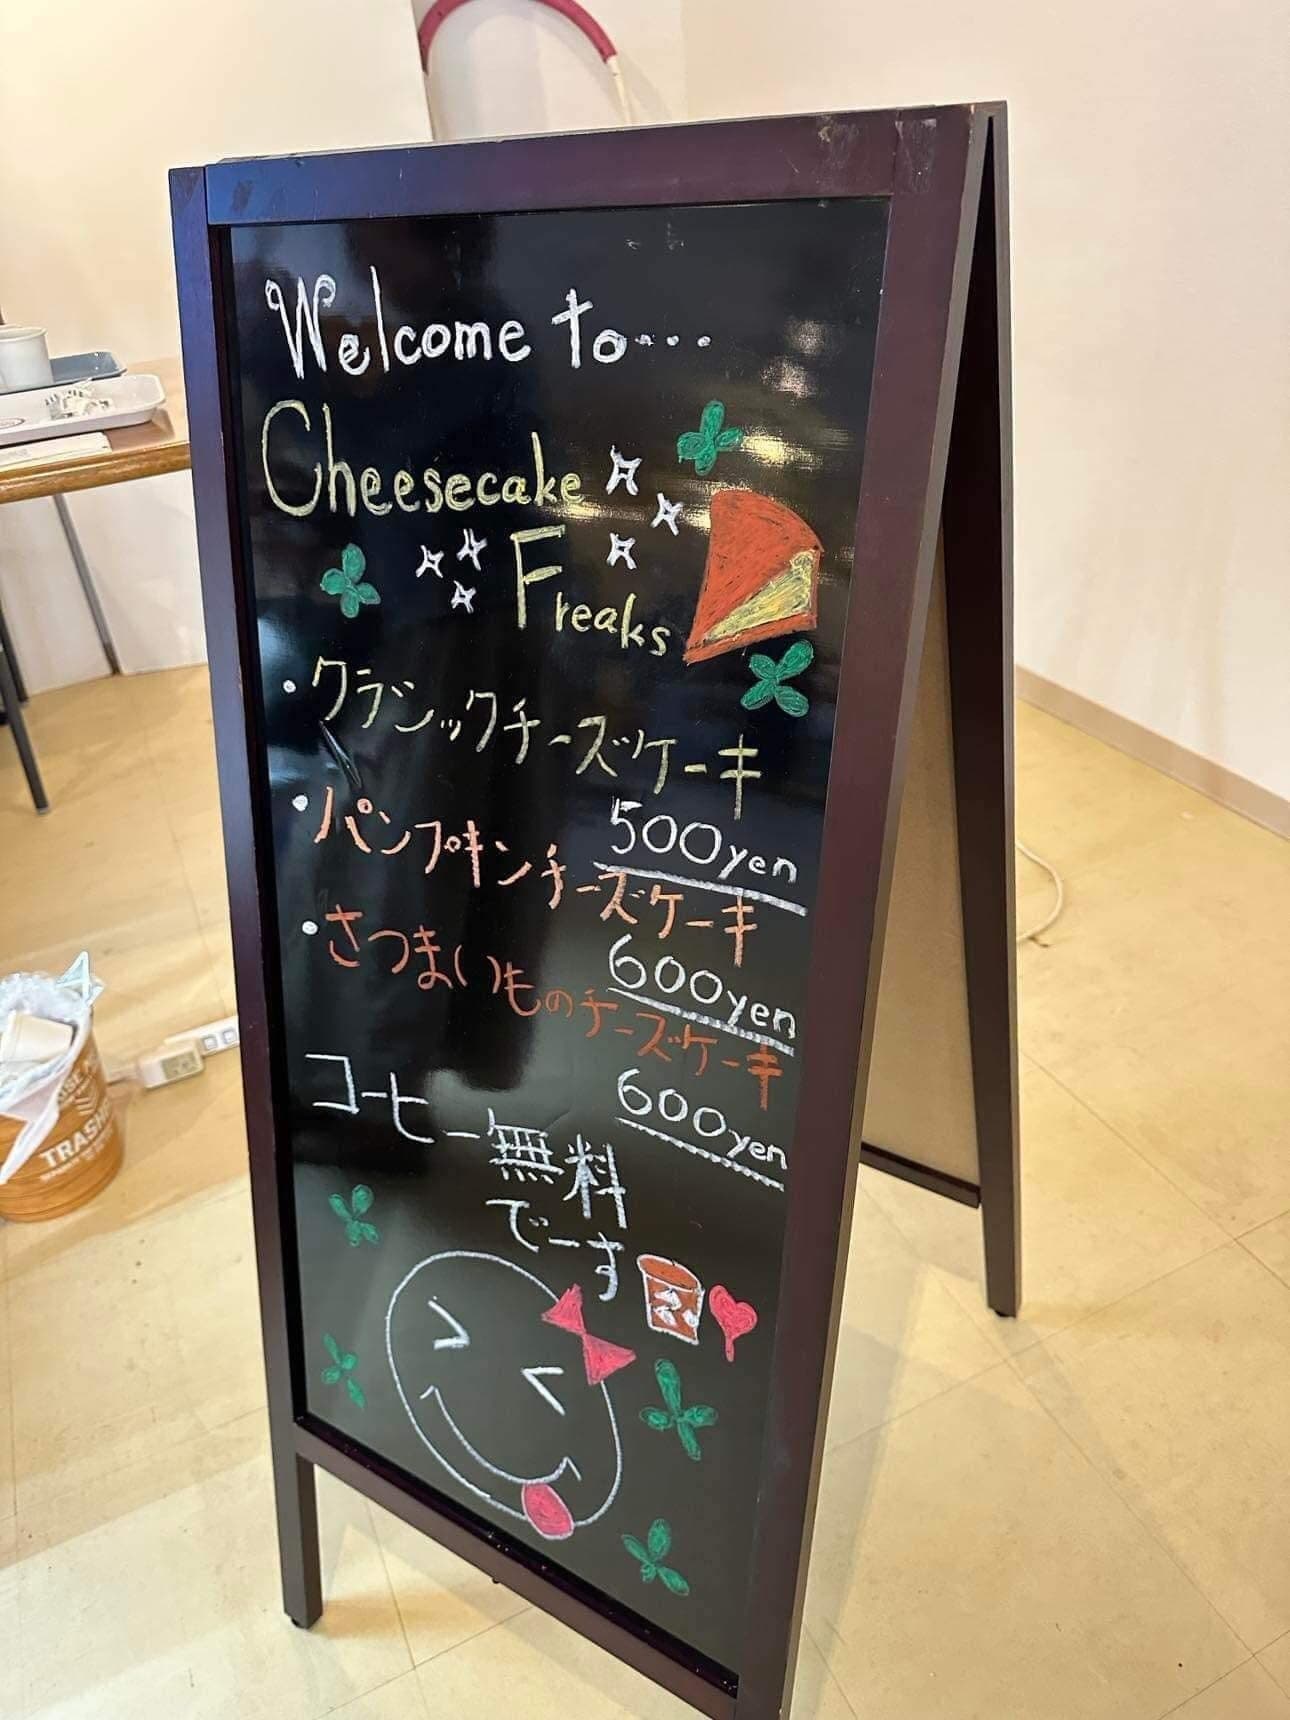 Welcome to...
Cheesecake
Freaks
・クラシックチーズケーキ
500yen
・パンプキンチーズケーキ
600yen
・さつまいものチーズケーキ
600yen
コーヒー無料
でーす
TRASH